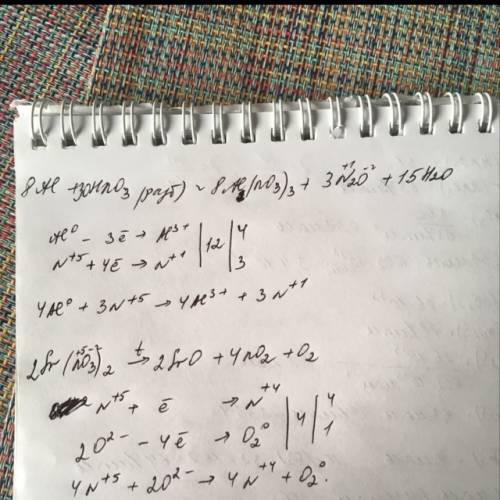 8Al + 30HNO₃ (разб) = 8Al(NO₃)₃ + 3N⁺¹₂O⁻² + 15H₂O
Al⁰ - 3ē → Al³⁺ | 12 | 4
N⁺⁵ + 4ē → N⁺¹ | 3
4Al⁰ + 3N⁺⁵ → 4Al³⁺ + 3N⁺¹
2Sr(N⁺⁵O⁻²₃)₂ t→ 2SrO + 4NO₂ + O₂
N⁺⁵ + ē → N⁺⁴ | 4 | 4
2O²⁻ - 4ē → O₂⁰ | 1
4N⁺⁵ + 2O²⁻ → 4N⁺⁴ + O₂⁰.